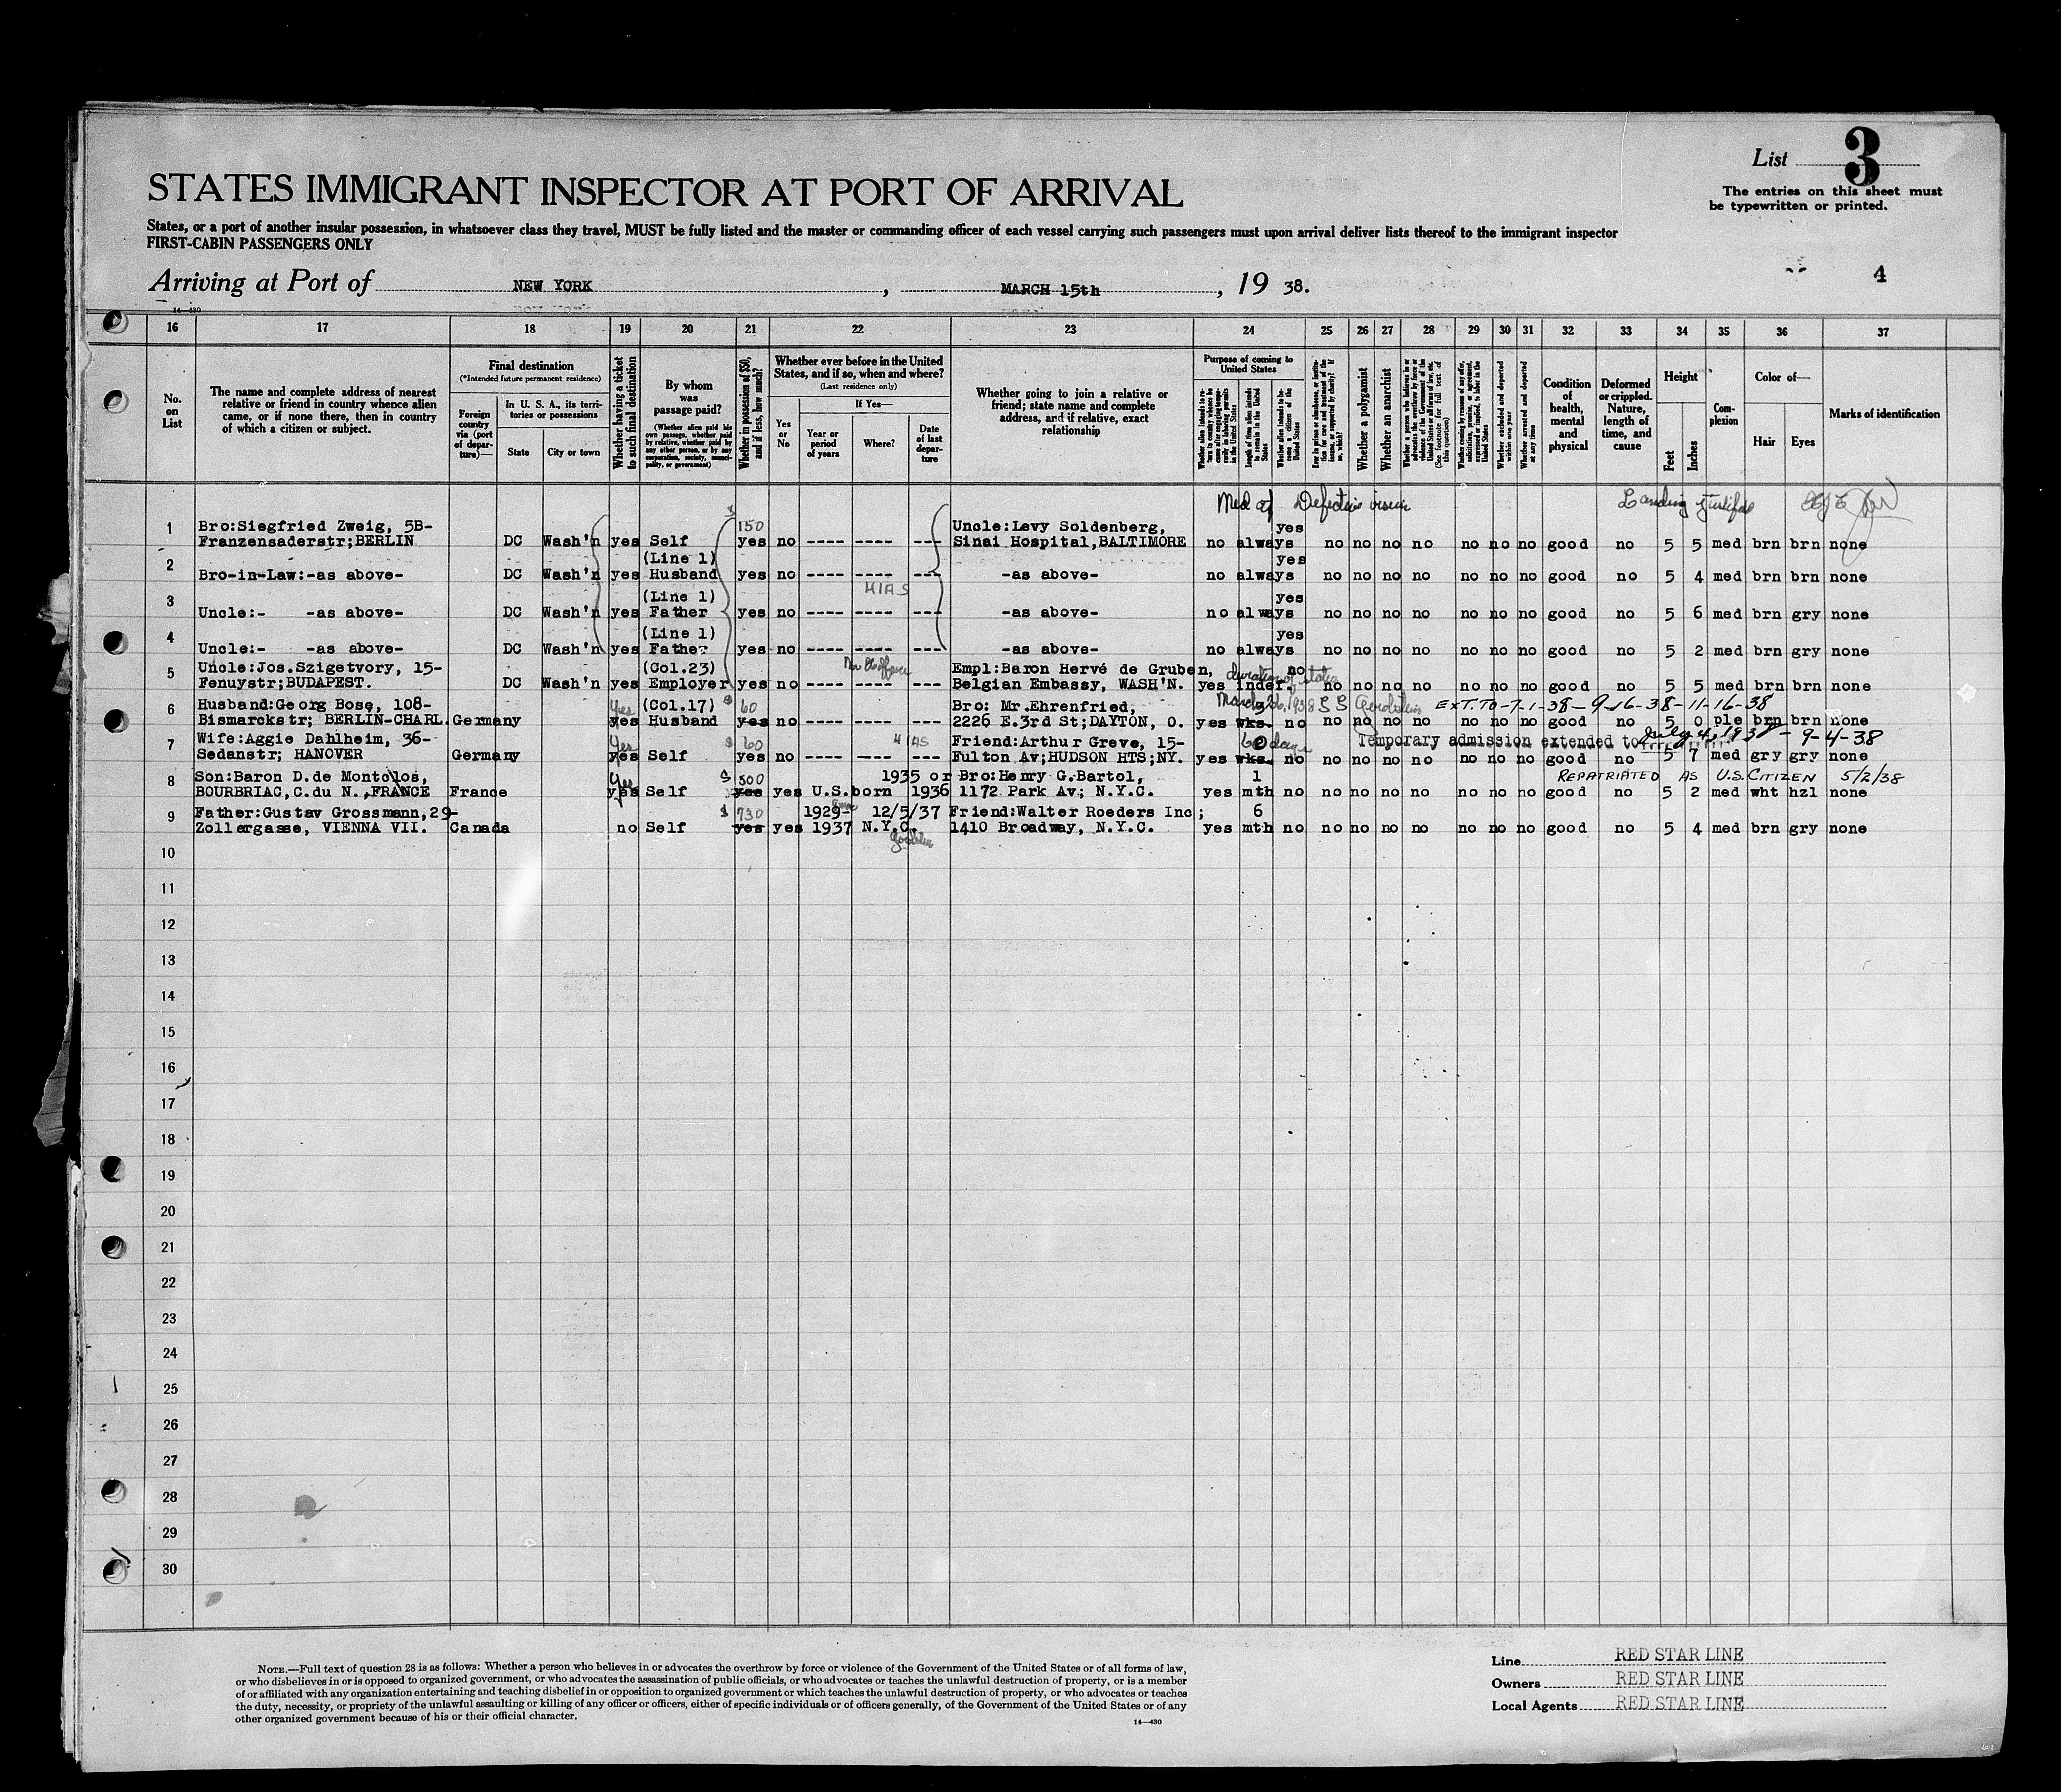 List 3
The entries on this sheet must
be typewritten or printed.
STATES IMMIGRANT INSPECTOR AT PORT OF ARRIVAL
States, or a port of another insular possession, in whatsoever class they travel, MUST be fully listed and the master or commanding officer of each vessel carrying such passengers must upon arrival deliver lists thereof to the immigrant inspector
FIRST-CABIN PASSENGERS ONLY
Arriving at Port of NEW YORK, MARCH 15th, 19 38.
4
14—430
16 17 18 19 20 21 22 23 24 25 26 27 28 29 30 31 32 33 34 35 36 37
No. on List
The name and complete address of nearest
relative or friend in country whence alien
came, or if none there, then in country
of which a citizen or subject.
Final destination
(*Intended future permanent residence)
Foreign country via (port of departure)—
In U. S. A., its territories or possessions
State
City or town
Whether having a ticket to such final destination
By whom was passage paid?
(Whether alien paid his own passage, whether paid by relative, whether paid by any other person, or by any corporation, society, municipality, or government)
Whether in possession of $50, and if less, how much?
Whether ever before in the United
States, and if so, when and where?
(Last residence only)
Yes or No
If Yes—
Year or period of years
Where?
Date of last departure
Whether going to join a relative or
friend; state name and complete
address, and if relative, exact
relationship
Purpose of coming to United States
Length of time alien intends to remain in the United States
Whether alien intends to become a citizen of the United States
Whether a polygamist
Whether an anarchist
(See footnote for full text of this question)
Whether arrested and deported at any time
Condition of health, mental and physical
Deformed or crippled. Nature, length of time, and cause
Height
Feet
Inches
Complexion
Color of—
Hair
Eyes
Marks of identification
Med of Defective vision Landing Justified
1 Bro:Siegfried Zweig, 5B- 150 Uncle:Levy Soldenberg, yes
Franzensaderstr;BERLIN DC Wash'n yes Self yes no ---- ---- --- Sinai Hospital,BALTIMORE no always no no no no no no no good no 5 5 med brn brn none
2 (Line 1) yes
Bro-in-Law:-as above- DC Wash'n yes Husband yes no ---- ---- --- -as above- no always no no no no no no no good no 5 4 med brn brn none
HIAS
3 (Line 1) yes
Uncle:- -as above- DC Wash'n yes Father yes no ---- ---- --- -as above- no always no no no no no no no good no 5 6 med brn gry none
4 (Line 1) yes
Uncle:- -as above- DC Wash'n yes Father yes no ---- ---- --- -as above- no always no no no no no no no good no 5 2 med brn gry none
5 Uncle:Jos.Szigetvory, 15- (Col.23) Empl:Baron Hervé de Gruben, duration of status no
Fenuystr;BUDAPEST. DC Wash'n yes Employer yes no ---- ---- --- Belgian Embassy, WASH'N. yes indef. no no no no no no no good no 5 5 med brn brn none
6 Husband:Georg Bose, 108- Yes (Col.17) $ 60 Bro: Mr.Ehrenfried, 3 March 26, 1938 SS EXT. TO-7-1-38-9-16-38-11-16-38
Bismarckstr; BERLIN-CHARL. Germany yes Husband yes no ---- ---- --- 2226 E.3rd St;DAYTON, O. yes wks. no no no no no no no no good no 5 0 ple brn brn none
7 Wife:Aggie Dahlheim, 36- Yes $ 60 HIAS Friend:Arthur Greve, 15- 60 days Temporary admission extended to July 4, 1938 - 9-4-38
Sedanstr; HANOVER Germany yes Self yes no ---- ---- --- Fulton Av;HUDSON HTS;NY. yes wks. no no no no no no no no good no 5 7 med gry gry none
8 Son:Baron D.de Montolos, Yes $ 500 1935 or Bro:Henry G.Bartol, 1 REPATRIATED AS U.S. CITIZEN 5/2/38
BOURBRIAC,C.du N.,FRANCE France yes Self yes yes U.S.born 1936 1172 Park Av; N.Y.C. yes mth no no no no no no no no good no 5 2 med wht hzl none
9 Father:Gustav Grossmann,29- $ 730 1929- 12/5/37 Friend:Walter Roeders Inc; 6
Zollergasse, VIENNA VII. Canada no Self yes yes 1937 N.Y.C. 1410 Broadway, N.Y.C. yes mth no no no no no no no no good no 5 4 med brn gry none
10
11
12
13
14
15
16
17
18
19
20
21
22
23
24
25
26
27
28
29
30
NOTE.—Full text of question 28 is as follows: Whether a person who believes in or advocates the overthrow by force or violence of the Government of the United States or of all forms of law,
or who disbelieves in or is opposed to organized government, or who advocates the assassination of public officials, or who advocates or teaches the unlawful destruction of property, or is a member
of or affiliated with any organization entertaining and teaching disbelief in or opposition to organized government or which teaches the unlawful destruction of property, or who advocates or teaches
the duty, necessity, or propriety of the unlawful assaulting or killing of any officer or officers, either of specific individuals or of officers generally, of the Government of the United States or of any
other organized government because of his or their official character.
14—430
Line RED STAR LINE
Owners RED STAR LINE
Local Agents RED STAR LINE